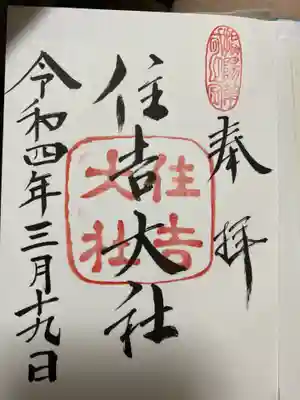 奉拝
住吉大社
住吉大社
令和四年三月十九日